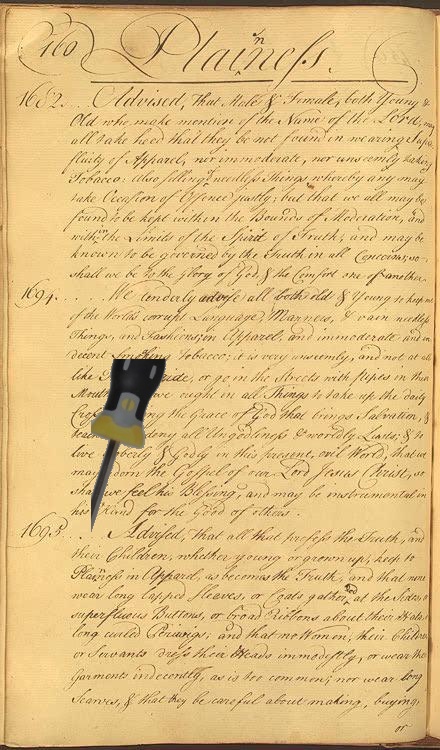 160
Plainness.
1682. . . Advised, that Male & Female, both Young &
Old who make mention of the Name of the Lord, may
all take heed that they be not found in wearing Supe
fluity of Apparel, nor immoderate, nor unseemly taking
Tobacco: Also selling needless Things whereby any may
take Occasion of Offence justly; but that we all may be
found to be kept within the Bounds of Moderation, and
within the Limits of the Spirit of Truth; and may be
known to be governed by the Truth in all Concerns; so
shall we be to the Glory of God, & the Comfort one of another.
1694. . . . . We tenderly advise all both old & Young to keep
of the World's corrupt Language, Manners, & vain needless
Things, and Fashions, in Apparel; and immoderate and in
decent Smoking Tobacco; it is very unseemly, and not at all
like or go in the Streets with pipes in their
ought in all Things to take up the daily
the Grace of God that brings Salvation, &
deny all Ungodliness & worldly Lusts; &
live Soberly & Godly in this present, evil World; that we
may adorn the Gospel of our Lord Jesus Christ, so
shall we feel his Blessing, and may be instrumental in
his Hand for the Good of others.
1695. . . Advised, that all that profess the Truth, and
their Children, whether young or grown up, keep to
Plainness in Apparel, as becomes the Truth; and that none
wear long lapped Sleeves, or Coats gathered at the Sides, or
superfluous Buttons, or broad Ribbons about their Hats, or
long curled Periwigs; and that no Women, their Children
or Servants dress their Heads immodestly, or wear their
Garments indecently, as is too common; nor wear long
Scarves, & that they be careful about making, buying,
or